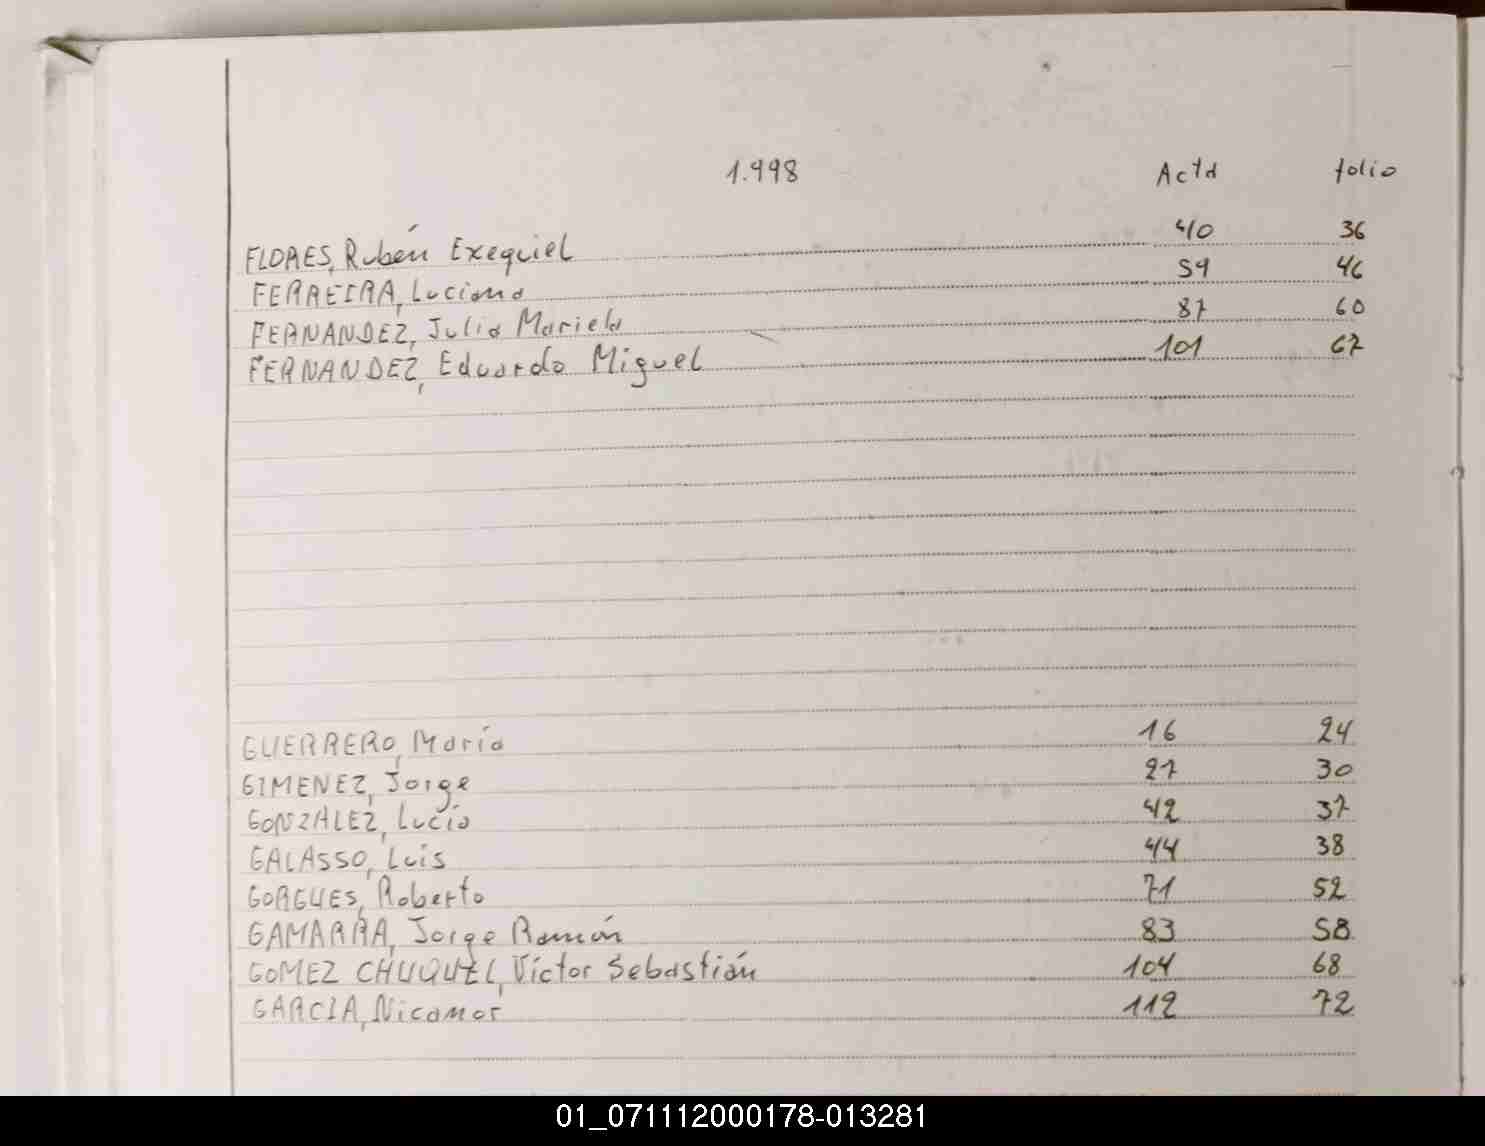 1.998 Acta folio
FLORES, Rubén Exequiel 40 36
FERREIRA, Luciano 59 46
FERNANDEZ, Julia Mariela 87 60
FERNANDEZ, Eduardo Miguel 101 67
GUERRERO, María 16 24
GIMENEZ, Jorge 27 30
GONZALEZ, Lucía 42 37
GALASSO, Luis 44 38
GORGUES, Roberto 71 52
GAMARRA, Jorge Ramón 83 58
GOMEZ CHUQUEL, Víctor Sebastián 104 68
GARCIA, Nicanor 112 72
01_071112000178-013281